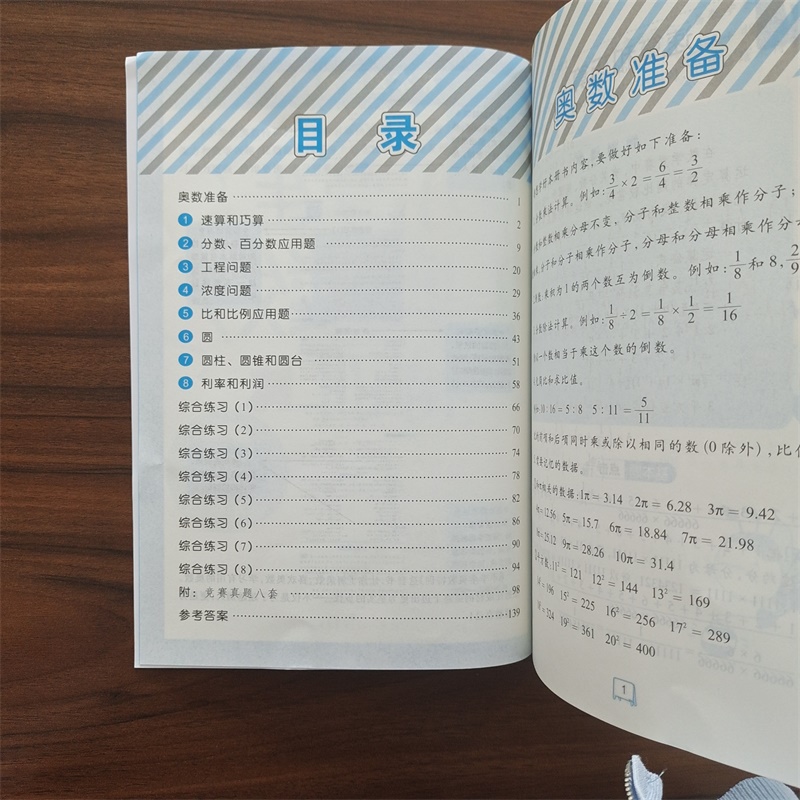 目 录
奥数准备 1
1 速算和巧算 2
2 分数、百分数应用题 9
3 工程问题 20
4 浓度问题 29
5 比和比例应用题 36
6 圆 43
7 圆柱、圆锥和圆台 51
8 利率和利润 58
综合练习(1) 66
综合练习(2) 70
综合练习(3) 74
综合练习(4) 78
综合练习(5) 82
综合练习(6) 86
综合练习(7) 90
综合练习(8) 94
附:竞赛真题八套 98
参考答案 139
奥数准备
本册书内容,要做好如下准备:
乘法计算。例如:3/4 × 2 = 6/4 = 3/2
和整数相乘分母不变,分子和整数相乘作分子;
分子和分子相乘作分子,分母和分母相乘作分
乘积为1的两个数互为倒数。例如:1/8 和 8,2/9
除法计算。例如:1/8 ÷ 2 = 1/8 × 1/2 = 1/16
一个数相当于乘这个数的倒数。
比和求比值。
10:16 = 5:8 5:11 = 5/11
前项和后项同时乘或除以相同的数(0除外),比
要记忆的数据。
π相关的数据:1π = 3.14 2π = 6.28 3π = 9.42
4π = 12.56 5π = 15.7 6π = 18.84 7π = 21.98
8π = 25.12 9π = 28.26 10π = 31.4
11² = 121 12² = 144 13² = 169
14² = 196 15² = 225 16² = 256 17² = 289
18² = 324 19² = 361 20² = 400
1